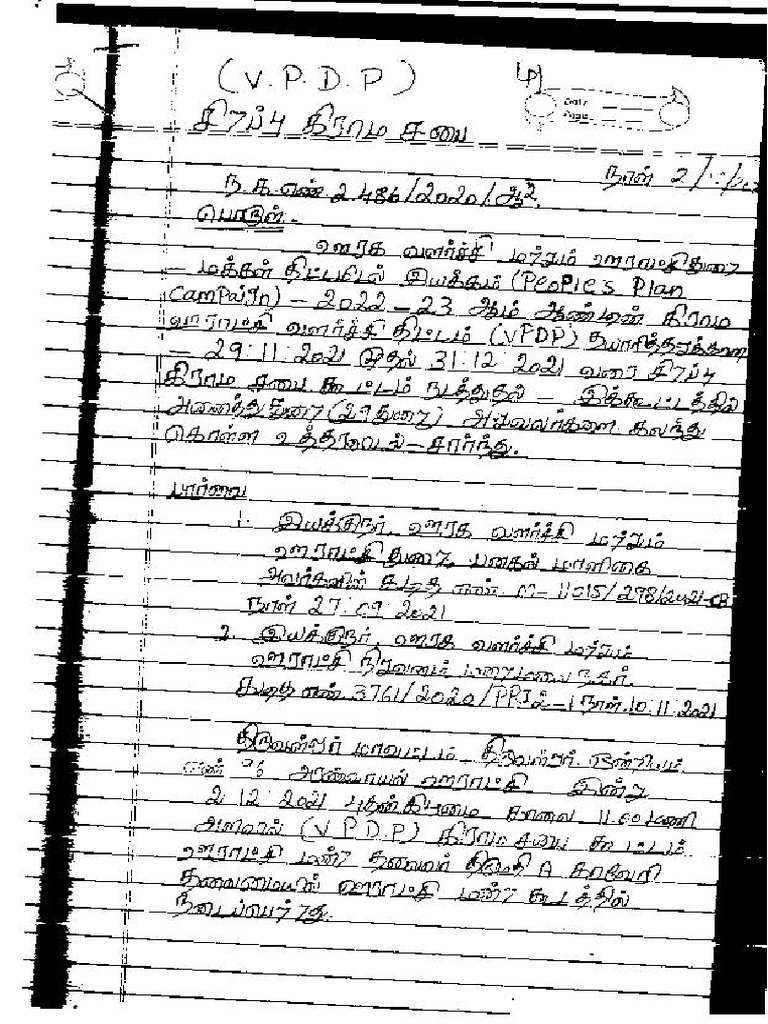 (V.P.D.P)
சிறப்பு கிராம சபை
நாள் 2/
ந.க.எண்.2486/2020/ஆ2.
பொருள்:-
ஊரக வளர்ச்சி மற்றும் ஊராட்சிதுறை
- மக்கள் திட்டமிடல் இயக்கம் (People's Plan
Campaign) - 2022-23 ஆம் ஆண்டின் கிராம
ஊராட்சி வளர்ச்சி திட்டம் (VPDP) தயாரித்தற்கான
- 29:11:2021 முதல் 31:12:2021 வரை சிறப்பு
கிராம சபை கூட்டம் நடத்துதல் - இக்கூட்டத்தில்
அனைத்து துறை (29 துறை) அலுவலர்களை கலந்து
கொள்ள உத்தரவிடல் - சார்ந்து.
பார்வை
1. இயக்குநர், ஊரக வளர்ச்சி மற்றும்
ஊராட்சி துறை, பனகல் மாளிகை
அவர்களின் கடித எண் M-11015/278/2021-CB
நாள் 27:09:2021
2. இயக்குநர், ஊரக வளர்ச்சி மற்றும்
ஊராட்சி நிறுவனம் மறைமலை நகர்.
கடித எண் 3761/2020/PRI2-1 நாள்.10:11:2021
திருவள்ளூர் மாவட்டம் திருவள்ளூர் ஒன்றியம்
எண் 26 அரண்வாயல் ஊராட்சி இன்று
2:12:2021 காலை 11.00 மணி
அளவில் (V P D P) கிராம சபை கூட்டம்
ஊராட்சி மன்ற தலைவர் திருமதி A காவேரி
தலைமையில் ஊராட்சி மன்ற கூடத்தில்
நடைப்பெற்றது.